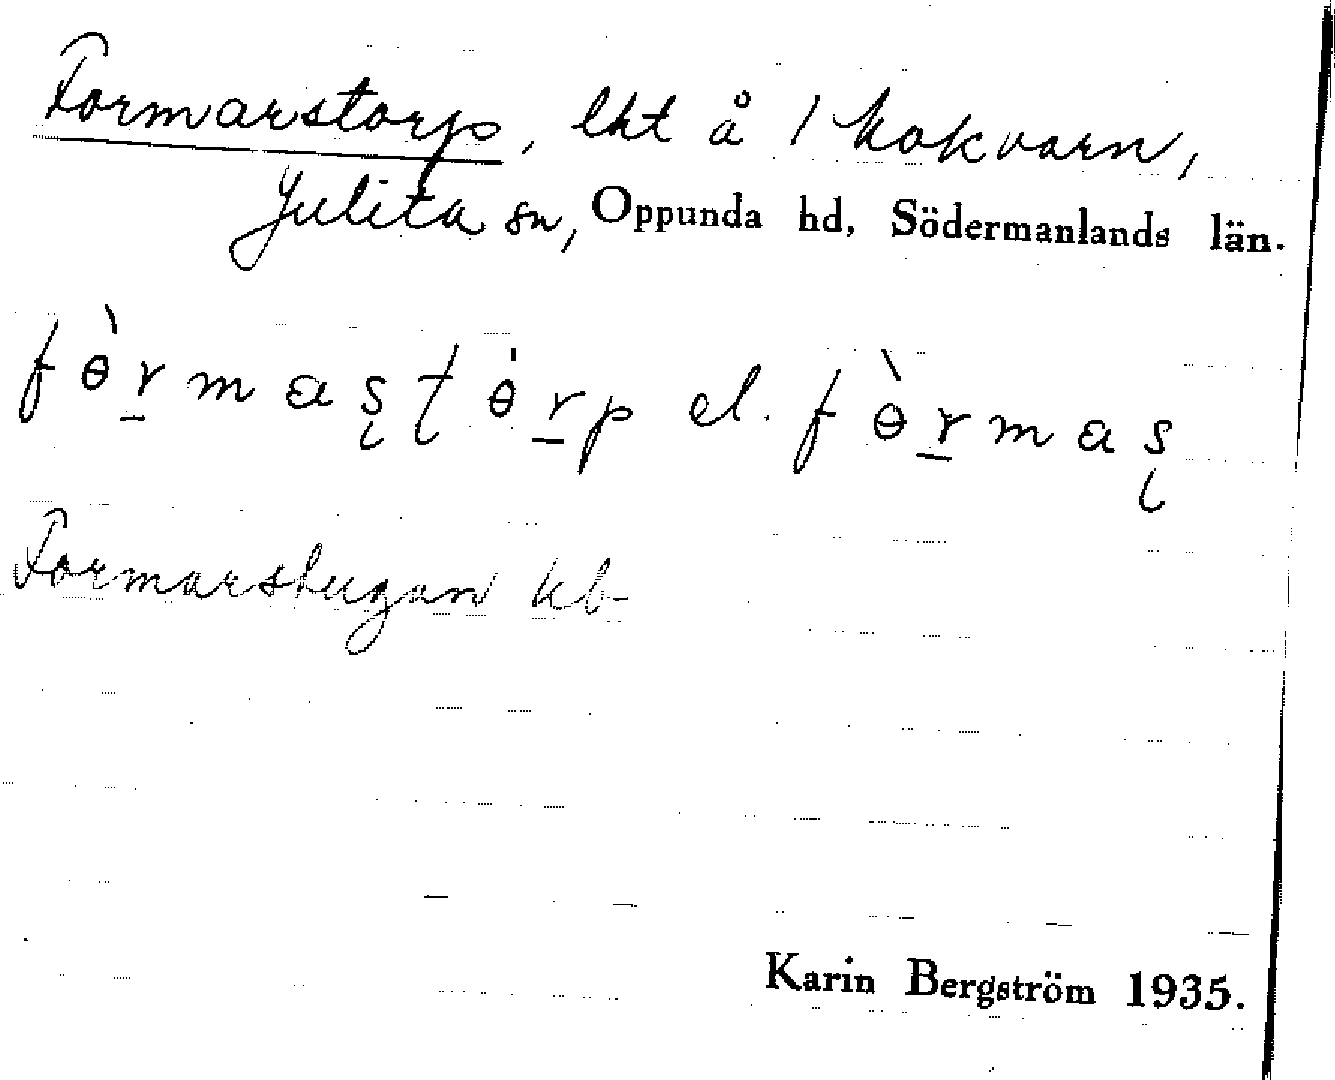 Formarstorp, lht å 1 Kokvarn,
Julita sn, Oppunda hd, Södermanlands län.
fɵ̀r̲maʂʈɵ̇r̲p el. fɵ̀r̲maʂ
Formarstugan
Karin Bergström 1935.